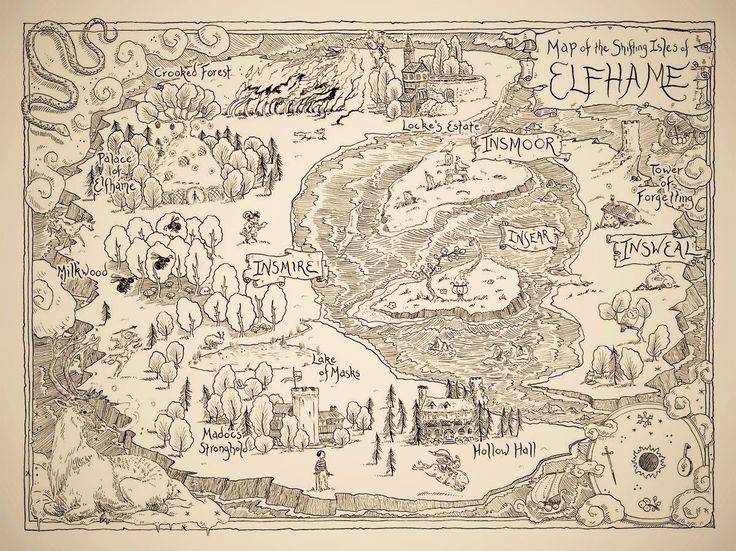 Map of the Shifting Isles of
ELFHAME
Crooked Forest
Locke's Estate
INSMOOR
Palace
of
Elfhame
Tower
of
Forgetting
INSEAR
INSWEAL
INSMIRE
Milkwood
Lake
of Masks
Madoc's
Stronghold
Hollow Hall